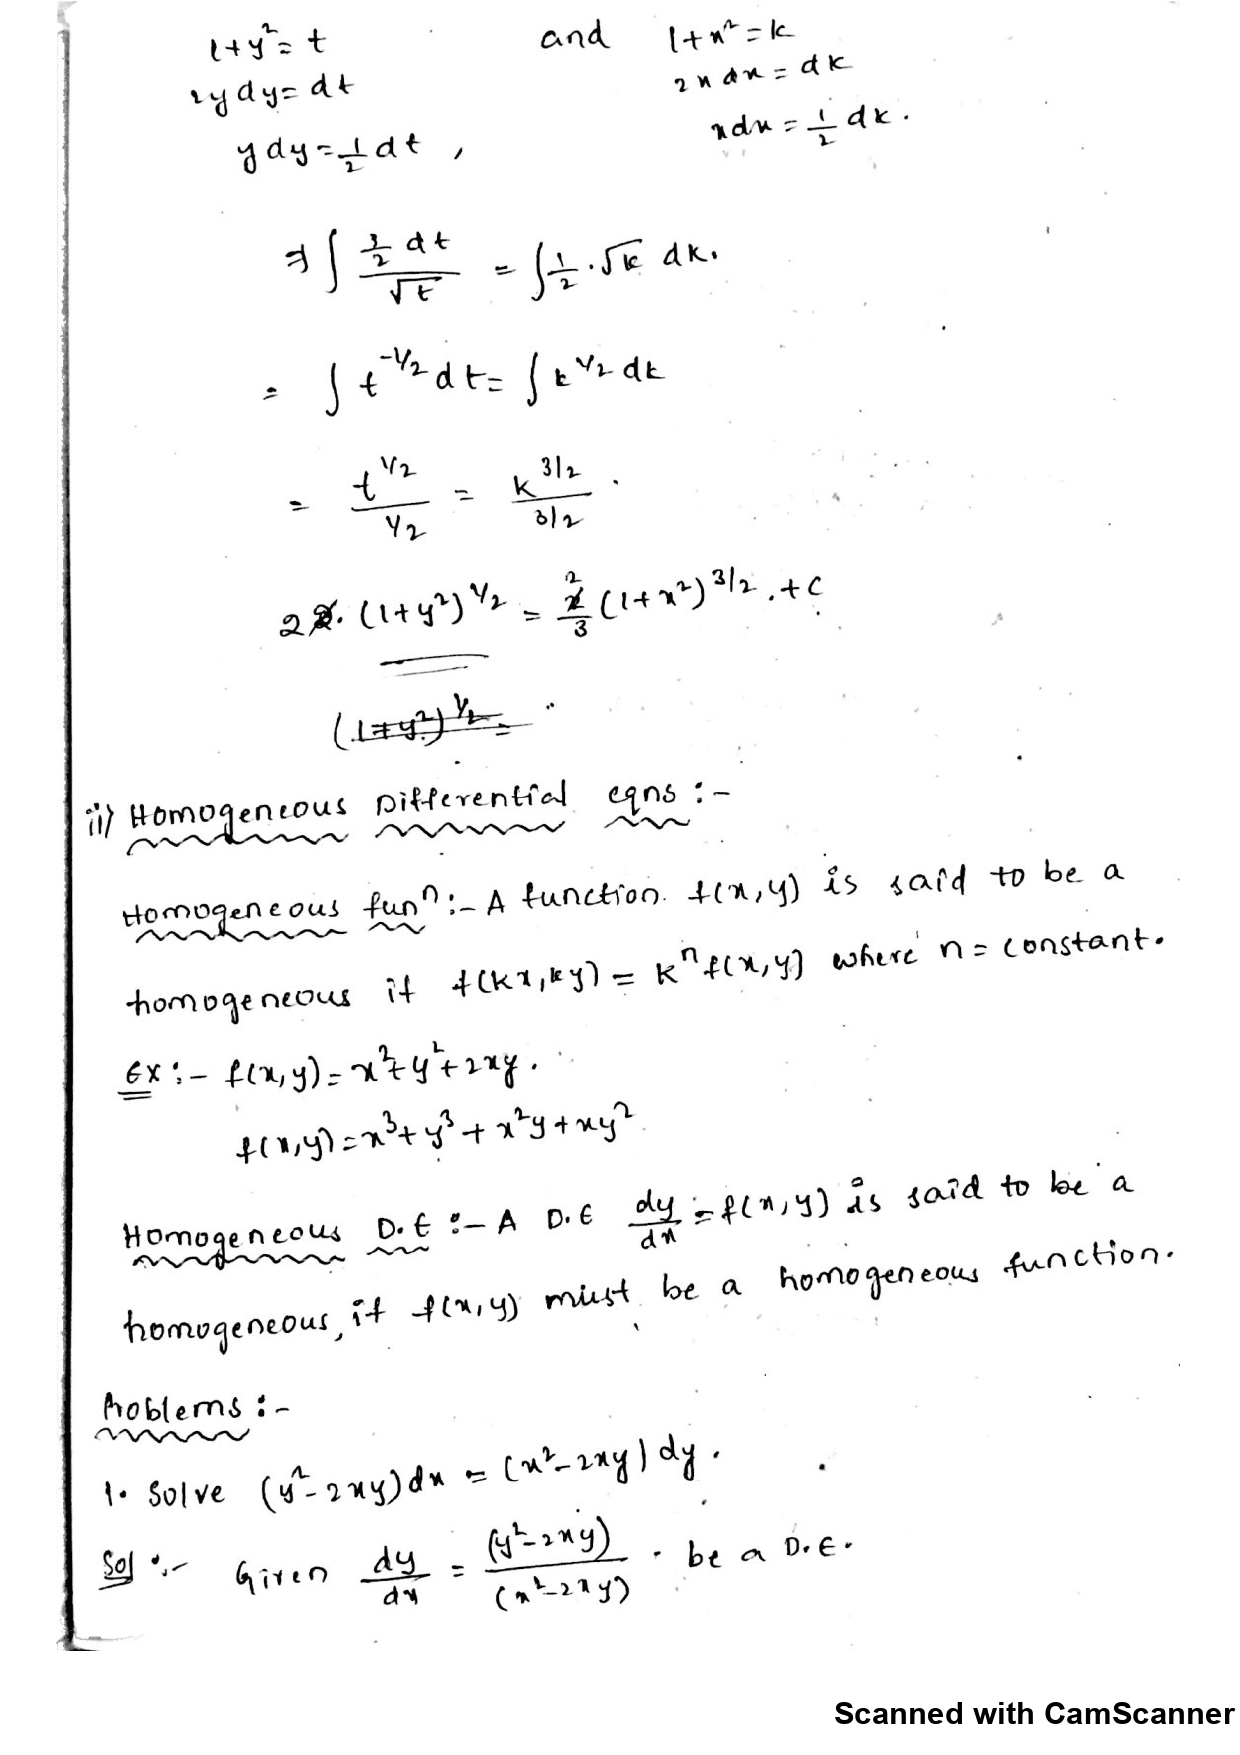 1+y²=t and 1+x²=k
2y dy=dt 2x dx = dk
y dy=1/2 dt , x dx = 1/2 dk.
⇒ ∫ (1/2 dt)/√t = ∫ 1/2 .√k dk.
= ∫ t^(-1/2) dt = ∫ k^(1/2) dk
= t^(1/2)/(1/2) = k^(3/2)/(3/2) .
2. (1+y²)^(1/2) = 2/3 (1+x²)^(3/2) .+c
(1+y²)^(1/2) =
ii) Homogeneous Differential eqns :-
Homogeneous funⁿ :- A function f(x,y) is said to be a
homogeneous if f(kx,ky) = kⁿ f(x,y) where n = constant.
Ex :- f(x,y) = x²+y²+2xy.
f(x,y) = x³+y³+x²y+xy²
Homogeneous D.E :- A D.E dy/dx = f(x,y) is said to be a
homogeneous, if f(x,y) must be a homogeneous function.
Problems :-
1. Solve (y²-2xy)dx = (x²-2xy)dy.
Sol :- Given dy/dx = (y²-2xy)/(x²-2xy) . be a D.E.
Scanned with CamScanner